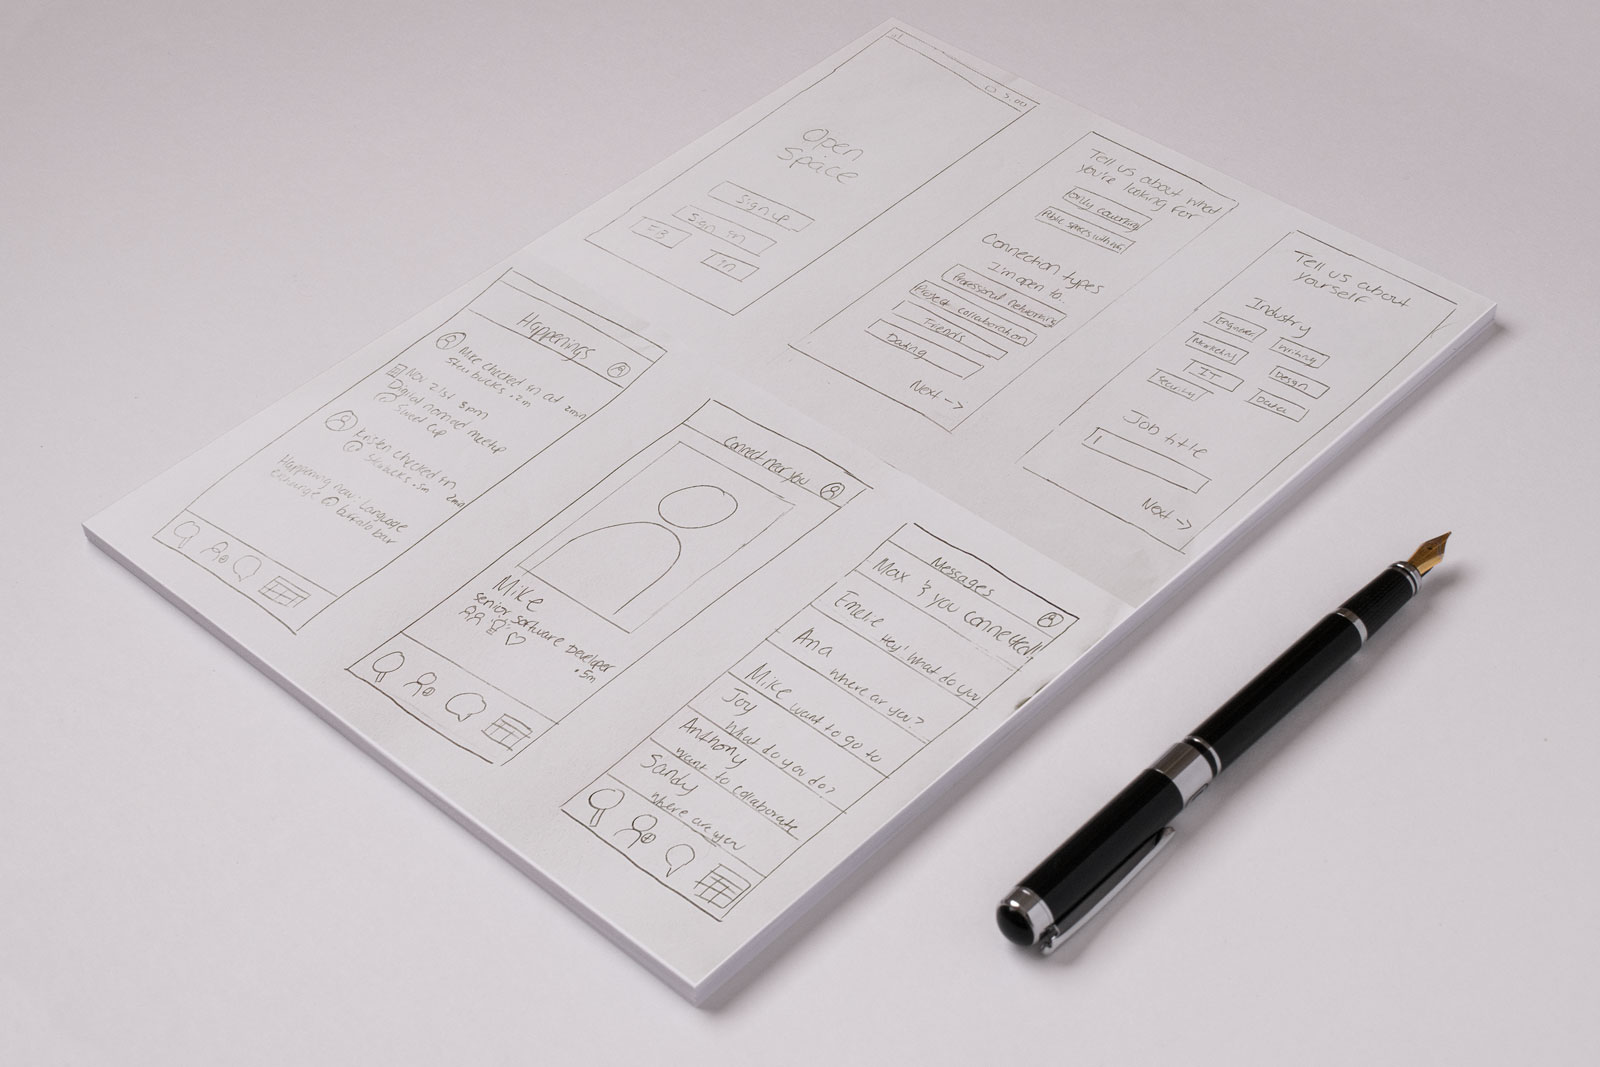 5:00
Open
Space
Sign up
Sign In
FB
in
Tell us about what
you're looking for
Only coworking
Public spaces with
Connection types
I'm open to..
Professional networking
Project collaboration
Friends
Dating
Next ->
Tell us about
yourself
Industry
Engineer
Writing
Marketing
Design
IT
Data
Security
Job title
Next ->
Happenings
Mike checked in at
Starbucks .2m 2min
Nov 21st 8pm
Digital nomad meetup
@ Sweet Cup
Kristen checked in
@ Starbucks .5m 2min
Happening now: Language
exchange @ buffalo bar
Connect near you
Mike
Senior software Developer
.5m
Messages
Max & you connected!!
Emelie Hey! What do you
Ana where ar you?
Mike want to go to
Joy What do you do?
Anthony want to collaborate
Sandy where are you